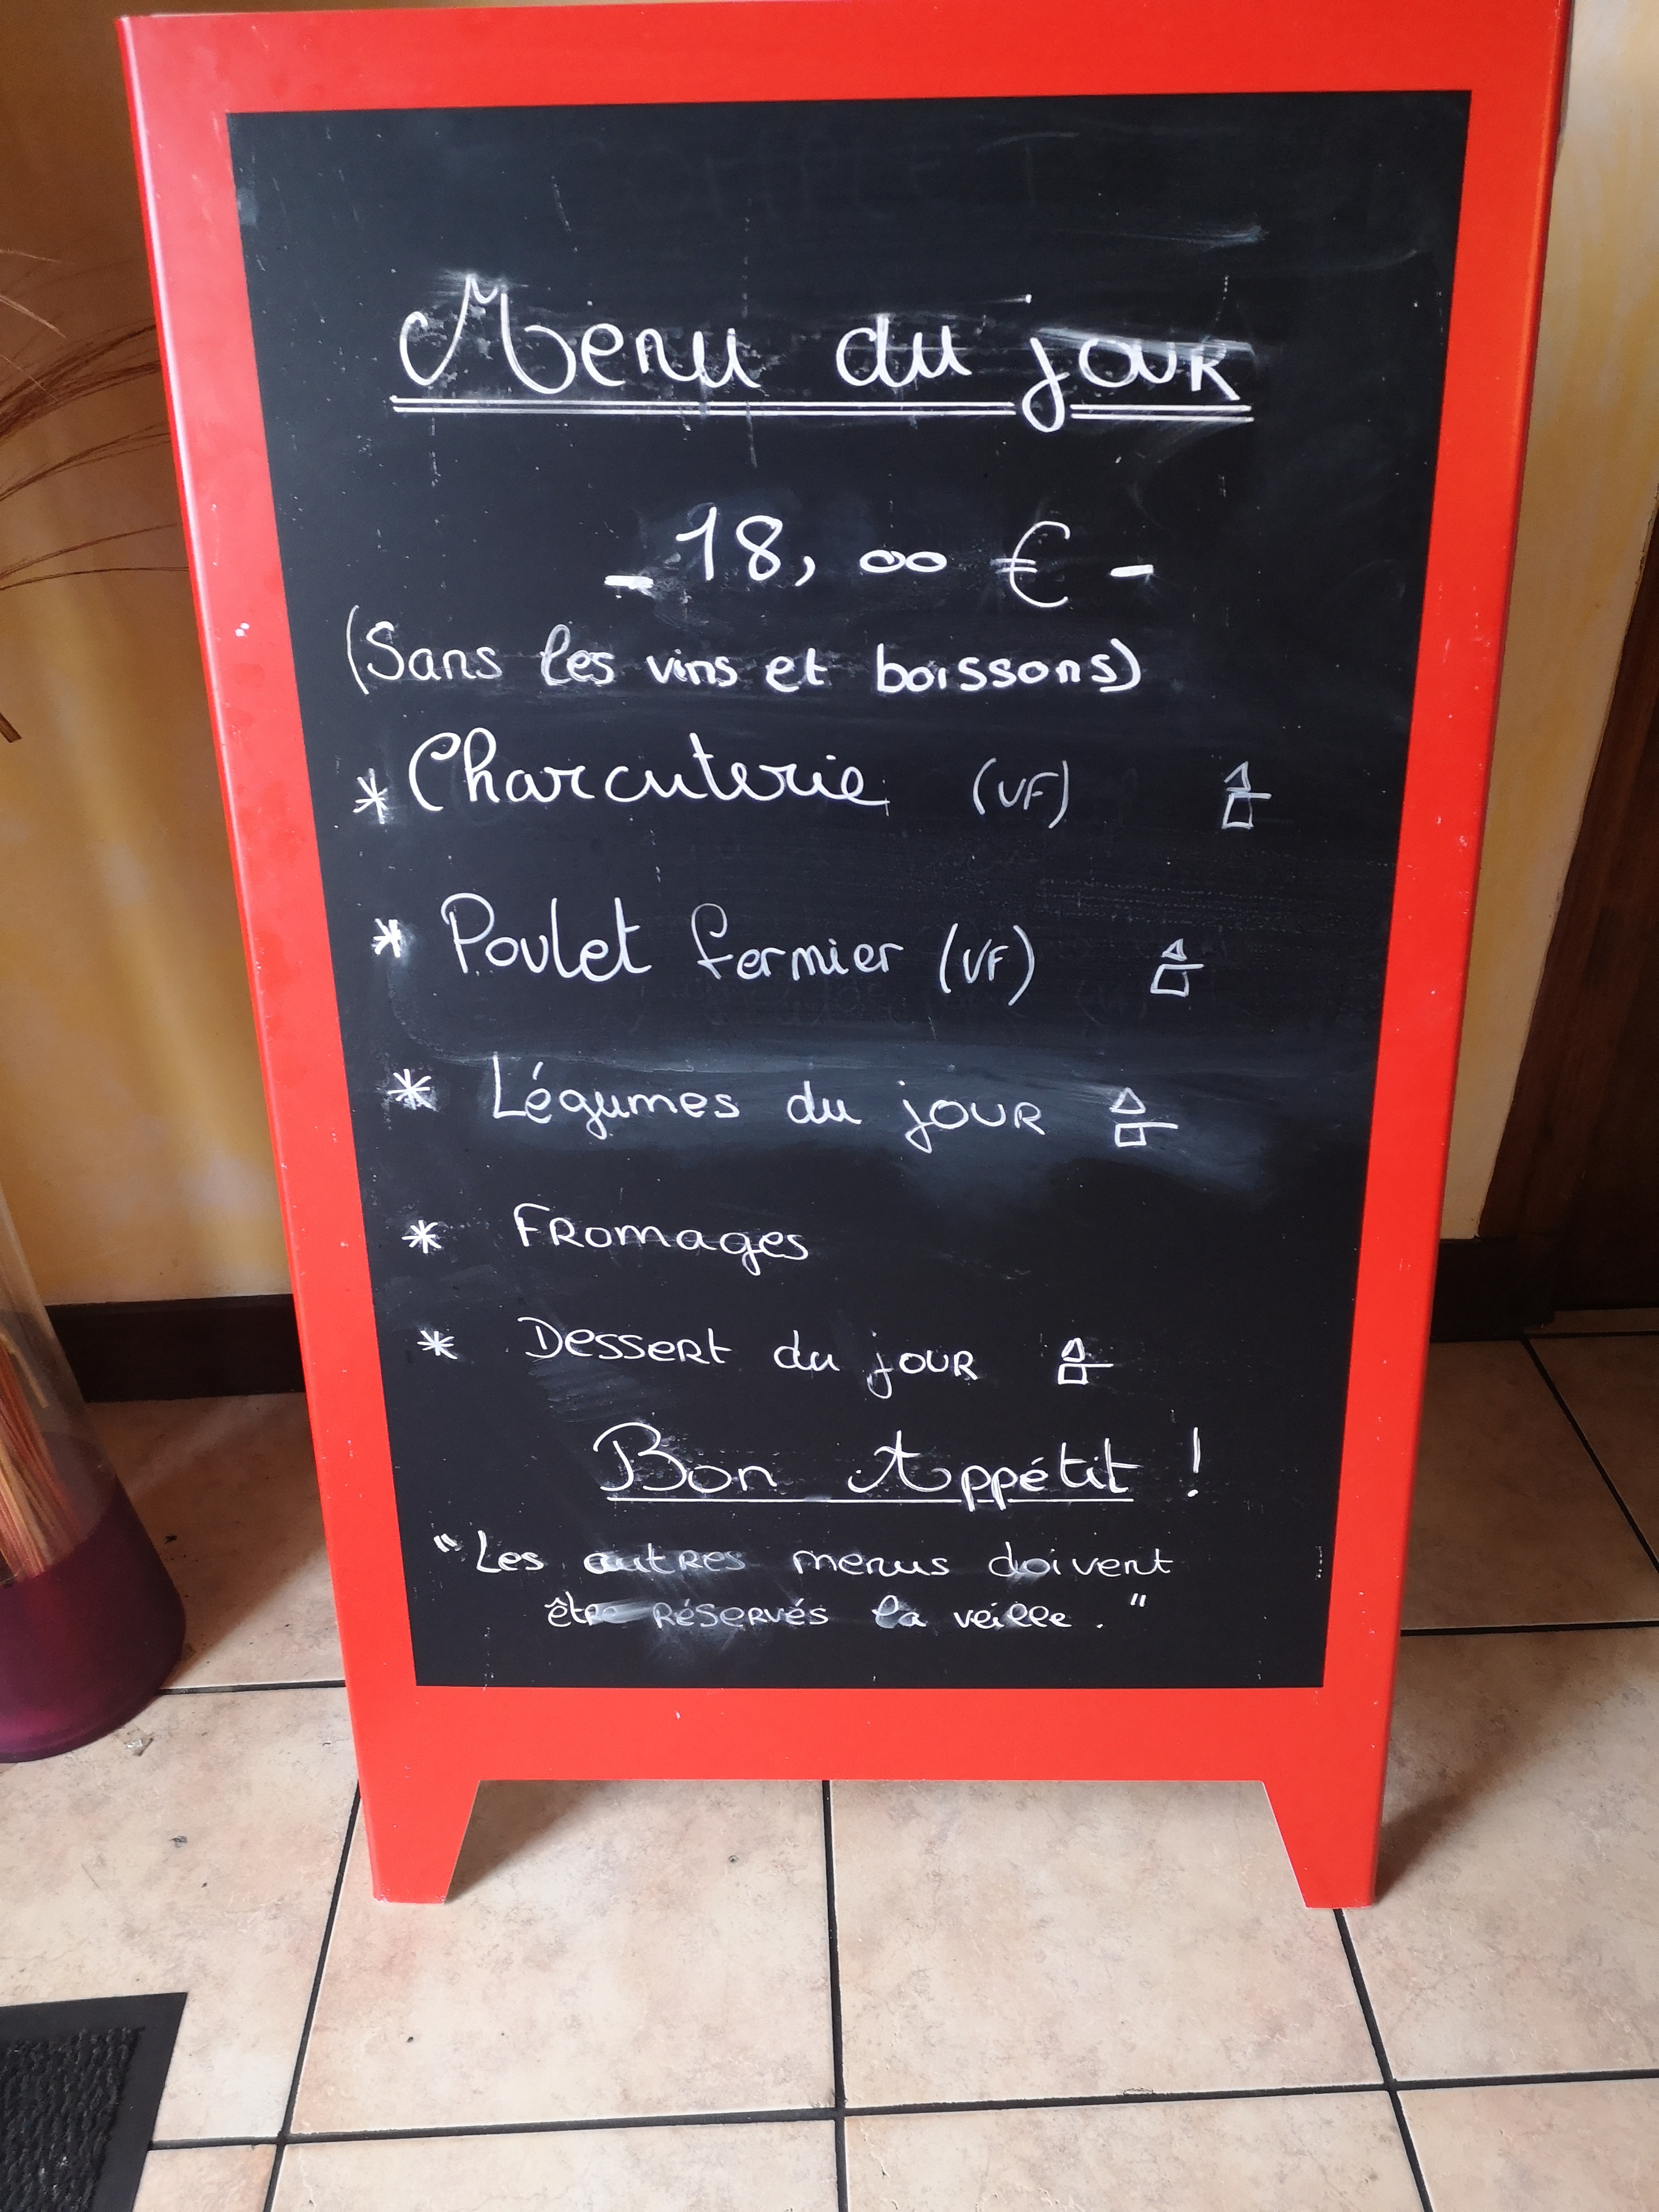 Menu du jour
- 18,00 € -
(Sans les vins et boissons)
* Charcuterie (VF)
* Poulet fermier (VF)
* Légumes du jour
* Fromages
* Dessert du jour
Bon Appétit !
"Les autres menus doivent
être réservés la veille."